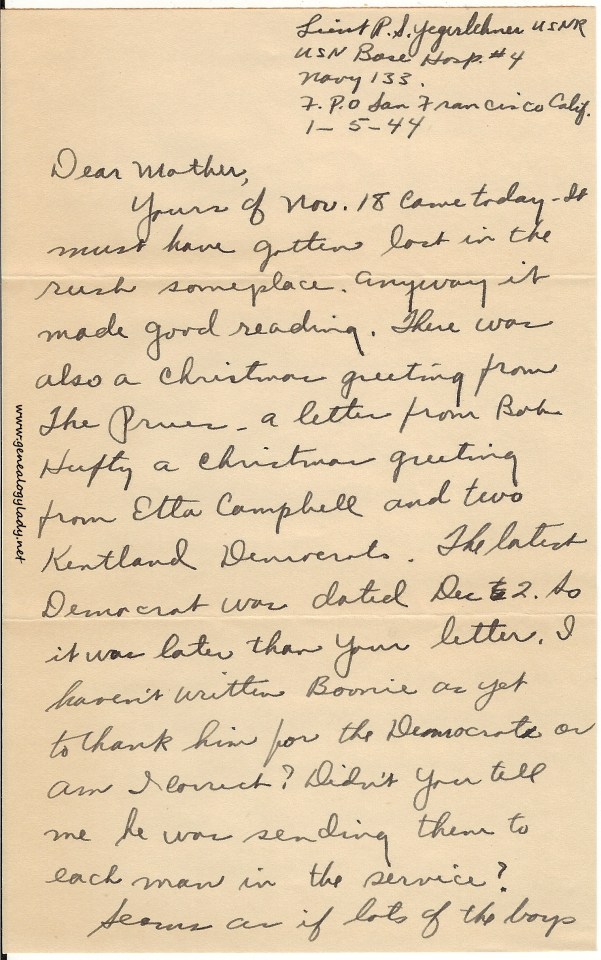 Lieut P. S. Yegerlehner USNR
USN Base Hosp. #4
Navy 133.
F.P.O San Francisco Calif.
1-5-44
Dear Mother,
Yours of Nov. 18 came today - It
must have gotten lost in the
rush someplace. Anyway it
made good reading. There was
also a Christmas greeting from
The Prues - a letter from Bob
Hufty a Christmas greeting
from Etta Campbell and two
Kentland Democrats. The latest
Democrat was dated Dec 2. So
it was later than your letter. I
haven't written Boonie as yet
to thank him for the Democrats or
am I correct? Didn't you tell
me he was sending them to
each man in the service?
Seems as if lots of the boys
www.genealogylady.net